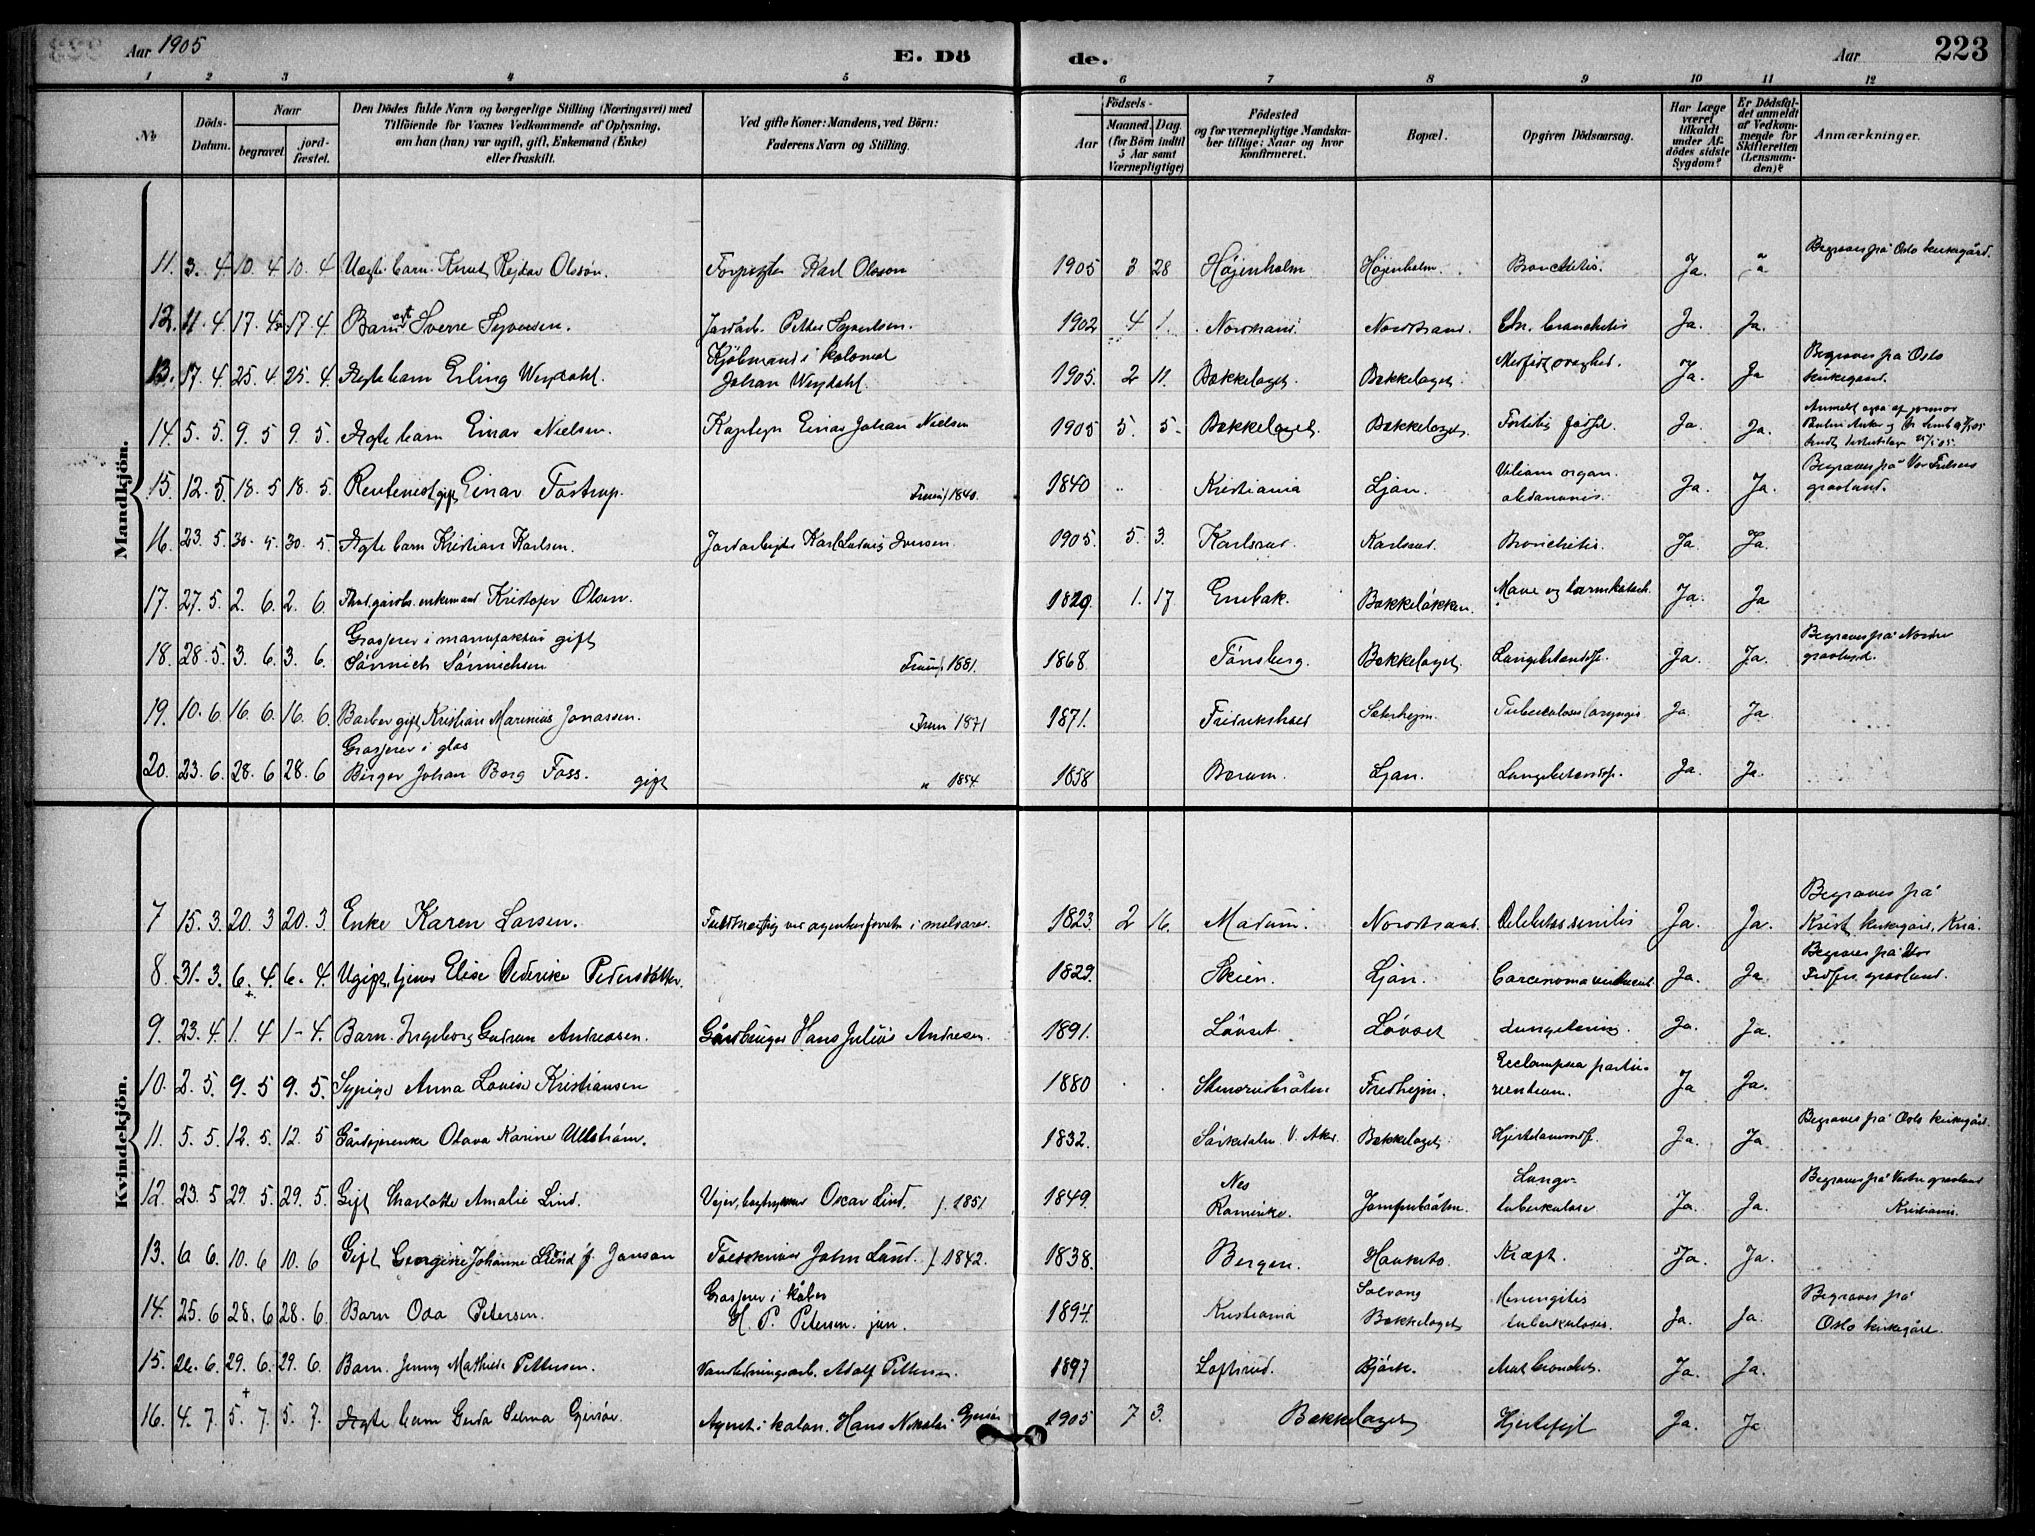 Aar 1905
E. Dö
de.
Aar
223
1 2 3 4 5 6 7 8 9 10 11 12
No
Döds-Datum.
Naar
begravet
jordfæstet.
Den Dödes fulde Navn og borgerlige Stilling (Næringsvei) med
Tilföiende for Voxnes Vedkommende af Oplysning,
om han (hun) var ugift, gift, Enkemand (Enke)
eller fraskilt.
Ved gifte Koner: Mandens, ved Börn:
Faderens Navn og Stilling.
Födsels-
Aar
Maaned. Dag.
(for Börn indtil
5 Aar samt
Værnepligtige)
Födested
og for værnepligtige Mandska-
ber tillige: Naar og hvor
konfirmeret.
Bopæl.
Opgiven Dödsaarsag.
Har Læge
været
tilkaldt
under Af-
dödes sidste
Sygdom?
Er Dödsfal-
det anmeldt
af Vedkom-
mende for
Skifteretten
(Lensman-
den)?
Anmærkninger.
Mandkjön.
11. 3. 4 10. 4 10. 4 Uægte barn Knut Rejdar Olsson. Karl Olsson 1905 3 28 Højenholm Højenholm. Bronchitis. Ja. " Begraves på Oslo kirkegård.
12. 11. 4. 17. 4. 17. 4 Barn Sverre Syversen. Jordarb. Petter Syvertsen. 1902 4 1. Nordstrand Nordstrand. Chr. bronchitis Ja. Ja.
13. 17. 4. 25. 4. 25. 4. Ægte barn Erling Weydahl. Kjöbmand i kolonial
Johan Weydahl. 1905. 2 11. Bækkelaget. Bækkelaget. Medfødt svaghed. Ja. Ja Begraves på Oslo
kirkegaard.
14. 5. 5. 9. 5 9. 5. Ægte barn Einar Nielsen. Kaptejn Einar Johan Nielsen 1905 5. 5. Bækkelaget. Bækkelaget. Ja. Ja. Anmeldt også af
15. 12. 5. 18. 5 18. 5. Rentenist gift Einar Tostrup. 1840. 1840 Kristiania Ljan. organ. Ja. Ja. Begraves på Vor Frelsers
gravlund.
16. 23. 5. 30. 5. 30. 5 Ægte barn Kristian Karlsen. Jordarbejder Karl Ludvig Iversen. 1905. 5. 3. Karlsrud. Karlsrud. Bronchitis. Ja Ja.
17. 27. 5. 2. 6. 2. 6 enkemand Kristofer Olsen. 1829. 1. 17 Enebak. Bækkeløkken. Mave og tarmkatarrh. Ja. Ja
18. 28. 5. 3. 6. 3. 6. Grosserer i manufaktur gift
Sönnich Sönnichsen 1881. 1868. Tönsberg. Bækkelaget. Lungebetændelse. Ja. Ja. Begraves på Nordre
gravlund.
19. 10. 6. 16. 6. 16. 6. Barber gift, Kristian Marinius Jonassen. 1871 1871. Fredrikshald Sæterhejm. Tuberkulosis laryngis Ja. Ja
20. 23. 6. 28. 6 28. 6 Grosserer i glas
Birger Johan Borg Foss. gift " 1854. 1858 Bærum. Ljan. Lungebetændelse. Ja. Ja.
Kvindekjön.
7 15. 3. 20. 3 20. 3 Enke Karen Larsen. 1823. 2 16. Modum. Nordstrand. Debilitas senilis Ja. Ja. Begraves på
Krist kirkegård, Kria.
8. 31. 3. 6. 4. 6. 4. Ugift, tjener Elise Dederike Pedersdatter. 1829. Skien. Ljan. Carcinoma ventriculi Ja. Ja Begraves på Vor
Frelsers gravlund.
9. 23. 4. 1. 4 1. 4. Barn. Ingeborg Gudrun Andreasen. Gårdbruger Hans Julius Andresen. 1891. Lövset. Lövset Ja. Ja.
10. 2. 5. 9. 5 9. 5. Sypige Anna Lovise Kristiansen 1880 Stensrudbråten Fredhejm. Ecclampsia parturientium. Ja Ja.
11. 5. 5. 12. 5. 12. 5 Gårdejerenke Olava Karine Ullström. 1832. Sørkedalen V. Aker. Bækkelaget. Ja. Ja Begraves på Oslo kirkegård.
12. 23. 5 29. 5. 29. 5. Gift Charlotte Amalie Lind. Oskar Lind. f. 1851 1849. Nes
Romerike. Jomfrubråten. Lungetuberkulose Ja. Ja. Begraves på Vestre gravlund
Kristiania.
13. 6 6. 10. 6 10. 6 Gift Georgine Johanne Lund f. Janson John Lund. f. 1842. 1838. Bergen. Hauketo. Kræft. Ja. Ja.
14. 25. 6 28. 6 28. 6. Barn Oda Petersen. Grosserer i
H. P. Petersen. jun. 1894. Kristiania Solvang
Bækkelaget Meningitis
tuberkulosis Ja. Ja. Begraves på
Oslo kirkegård.
15. 26. 6. 29. 6. 29. 6. Barn. Jenny Mathilde Pettersen. Vandledningsarb. Adolf Pettersen. 1897 Loftsrud. Björk. Akut bronchit. Ja. Ja.
16. 4. 7. 5. 7. 5. 7. Ægte barn Gerda Selma Gjersøe Agent i kolon. Hans Nikolai Gjersøe 1905 7 3. Bækkelaget Hjertefejl Ja. Ja